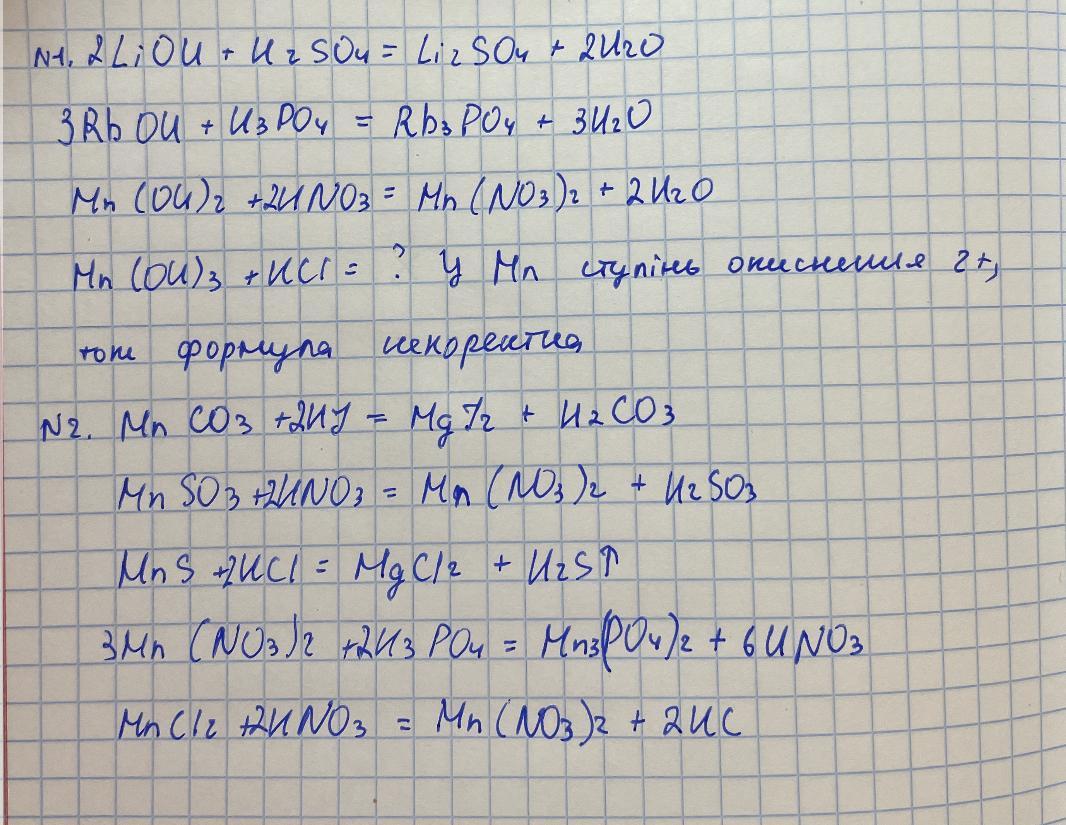 N1. 2LiOH + H2SO4 = Li2SO4 + 2H2O
3RbOH + H3PO4 = Rb3PO4 + 3H2O
Mn(OH)2 + 2HNO3 = Mn(NO3)2 + 2H2O
Mn(OH)3 + HCl = ? У Mn ступінь окиснення 2+,
тож формула некоректна
N2. MnCO3 + 2HJ = MgJ2 + H2CO3
MnSO3 + 2HNO3 = Mn(NO3)2 + H2SO3
MnS + 2HCl = MgCl2 + H2S↑
3Mn(NO3)2 + 2H3PO4 = Mn3(PO4)2 + 6HNO3
MnCl2 + 2HNO3 = Mn(NO3)2 + 2HC